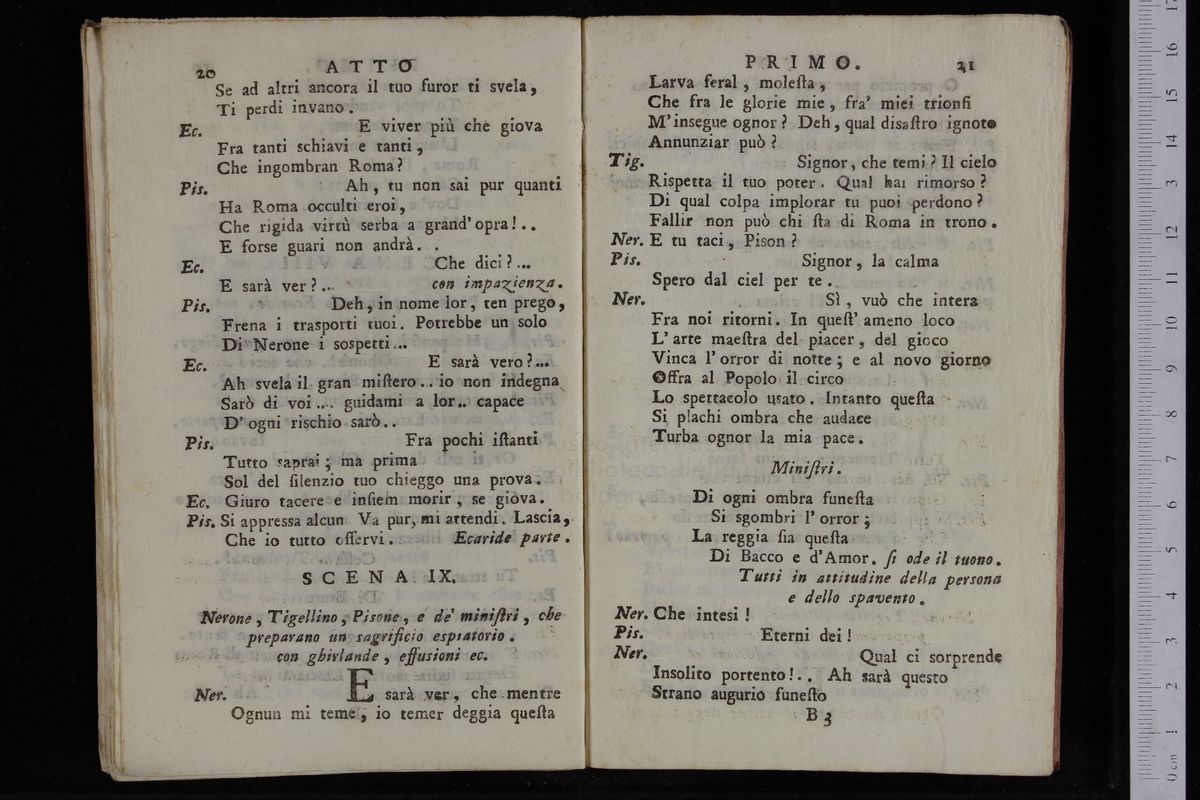 20 ATTO
Se ad altri ancora il tuo furor ti svela,
Ti perdi invano.
Ec. E viver più che giova
Fra tanti schiavi e tanti,
Che ingombran Roma?
Pis. Ah, tu non sai pur quanti
Ha Roma occulti eroi,
Che rigida virtù serba a grand' opra!..
E forse guari non andrà. .
Ec. Che dici?...
E sarà ver?... con impazienza.
Pis. Deh, in nome lor, ten prego,
Frena i trasporti tuoi. Potrebbe un solo
Di Nerone i sospetti...
Ec. E sarà vero?...
Ah svela il gran miſtero.. io non indegna
Sarò di voi.... guidami a lor.. capace
D' ogni rischio sarò..
Pis. Fra pochi iſtanti
Tutto saprai; ma prima
Sol del ſilenzio tuo chieggo una prova.
Ec. Giuro tacere e inſiem morir, se giova.
Pis. Si appressa alcun Va pur, mi attendi. Lascia,
Che io tutto oſſervi. Ecaride parte.
SCENA IX.
Nerone, Tigellino, Pisone, e de' miniſtri, che
preparano un sagrificio espiatorio.
con ghirlande, effusioni ec.
Ner. E sarà ver, che mentre
Ognun mi teme, io temer deggia queſta
PRIMO. 21
Larva feral, moleſta,
Che fra le glorie mie, fra' miei trionfi
M' insegue ognor? Deh, qual disaſtro ignoto
Annunziar può?
Tig. Signor, che temi? Il cielo
Rispetta il tuo poter. Qual hai rimorso?
Di qual colpa implorar tu puoi perdono?
Fallir non può chi ſta di Roma in trono.
Ner. E tu taci, Pison?
Pis. Signor, la calma
Spero dal ciel per te.
Ner. Sì, vuò che intera
Fra noi ritorni. In queſt' ameno loco
L' arte maeſtra del piacer, del gioco
Vinca l' orror di notte; e al novo giorno
Offra al Popolo il circo
Lo spettacolo usato. Intanto queſta
Si plachi ombra che audace
Turba ognor la mia pace.
Miniſtri.
Di ogni ombra funeſta
Si sgombri l' orror;
La reggia ſia queſta
Di Bacco e d'Amor. ſi ode il tuono.
Tutti in attitudine della persona
e dello spavento.
Ner. Che intesi!
Pis. Eterni dei!
Ner. Qual ci sorprende
Insolito portento!.. Ah sarà questo
Strano augurio funeſto
B 3